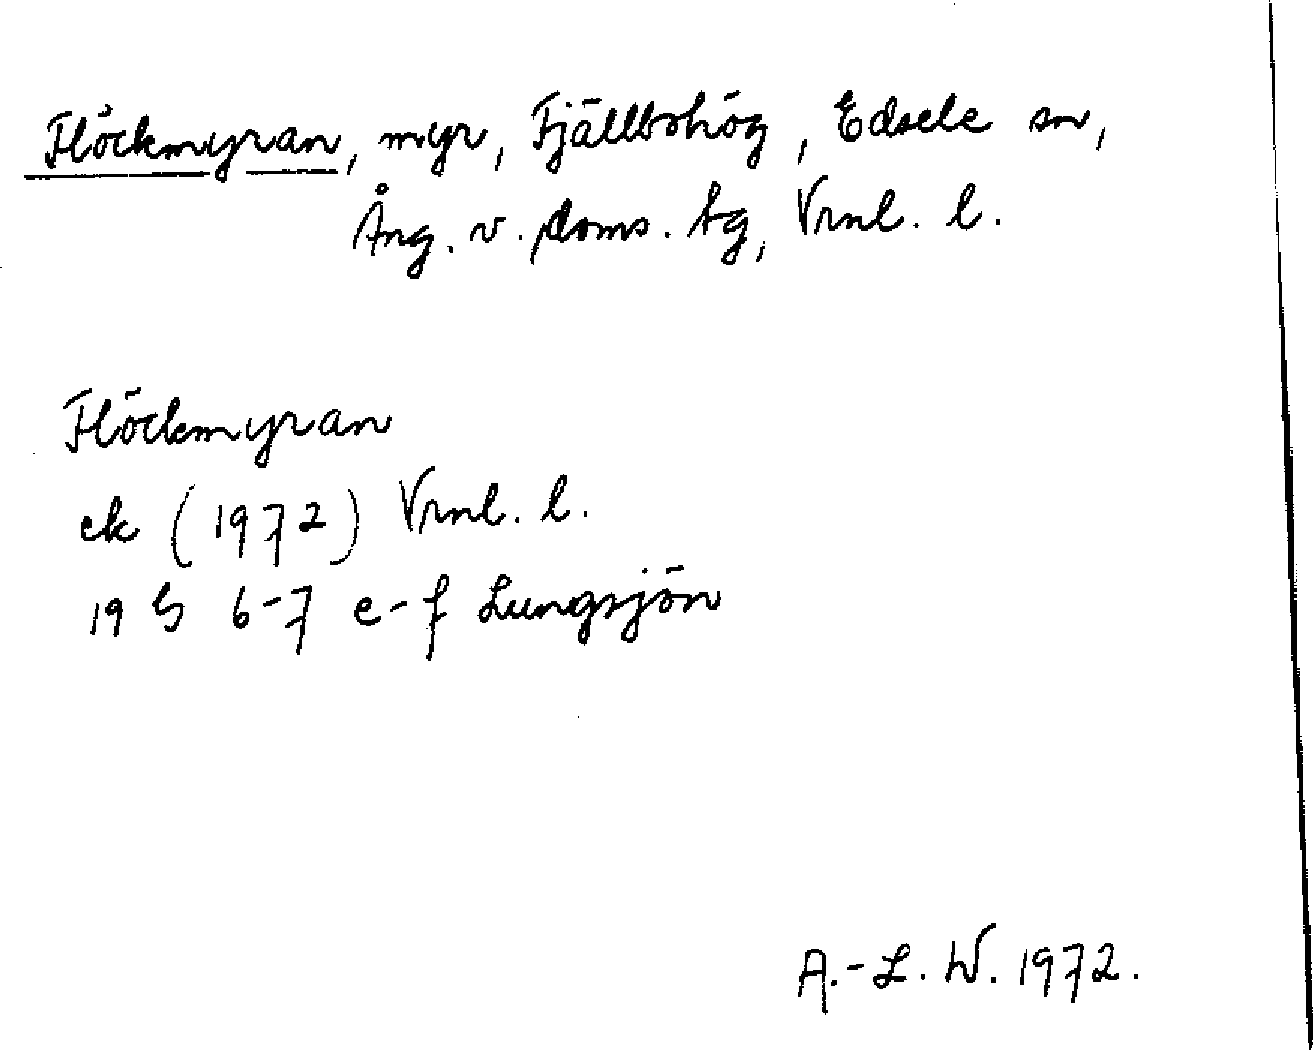 Flöckmyran, myr, Fjällbohög, Edsele sn,
Ång. v. doms. tg, Vrnl. l.
Flöckmyran
ek (1972) Vrnl. l.
19 G 6-7 e-f Lungsjön
A.-L. W. 1972.